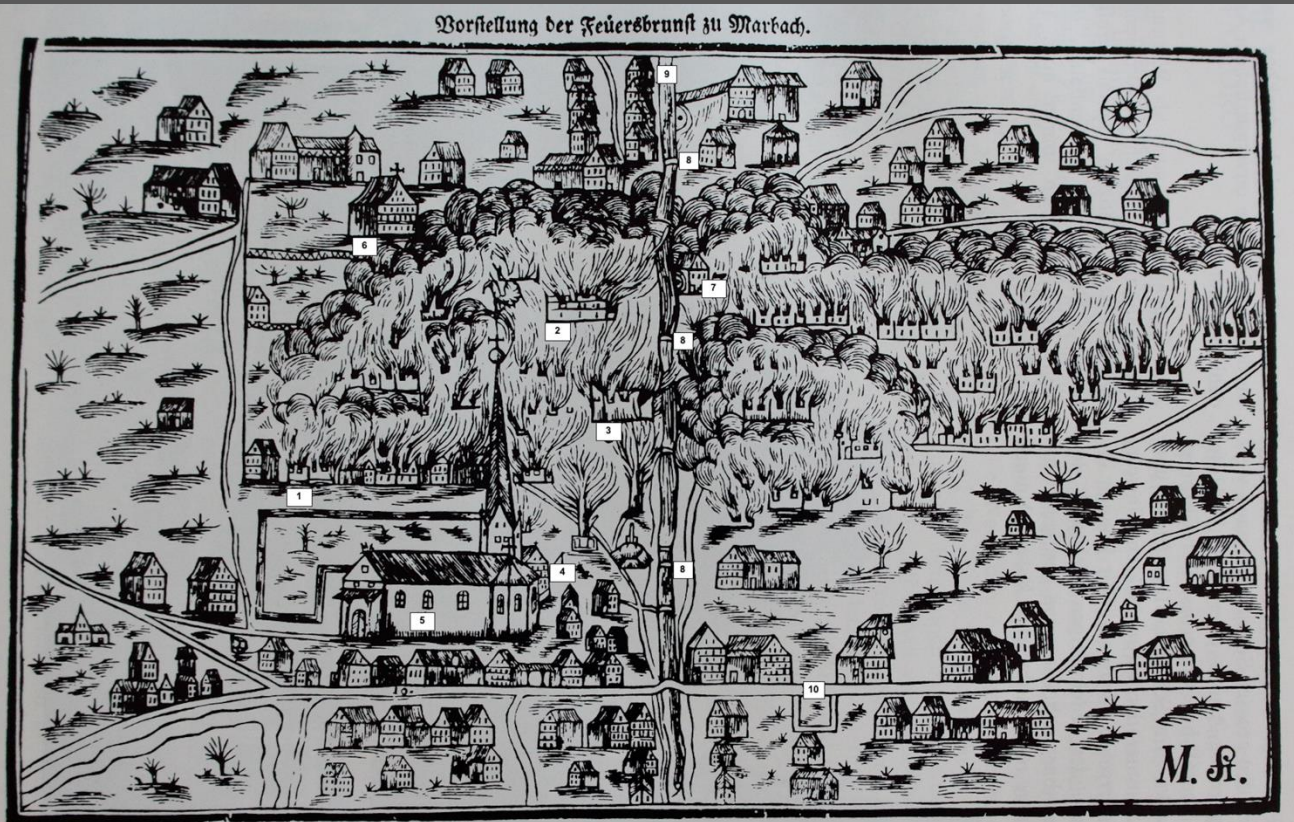 Vorſtellung der Feüersbrunſt zu Marbach.
9
8
6
7
2
8
3
1
4
8
5
10
M.